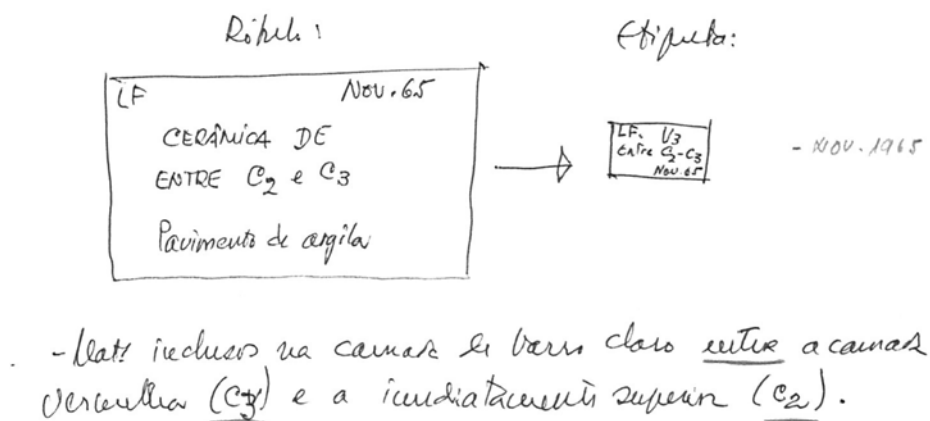 Rótulo: Etiqueta:
LF Nov. 65
CERÂMICA DE
ENTRE C2 e C3
Pavimento de argila
LF. V3
Entre C2-C3
Nov. 65
- NOV. 1965
- Mat. inclusos na camada de barro claro entre a camada
vermelha (C3) e a imediatamente superior (C2).